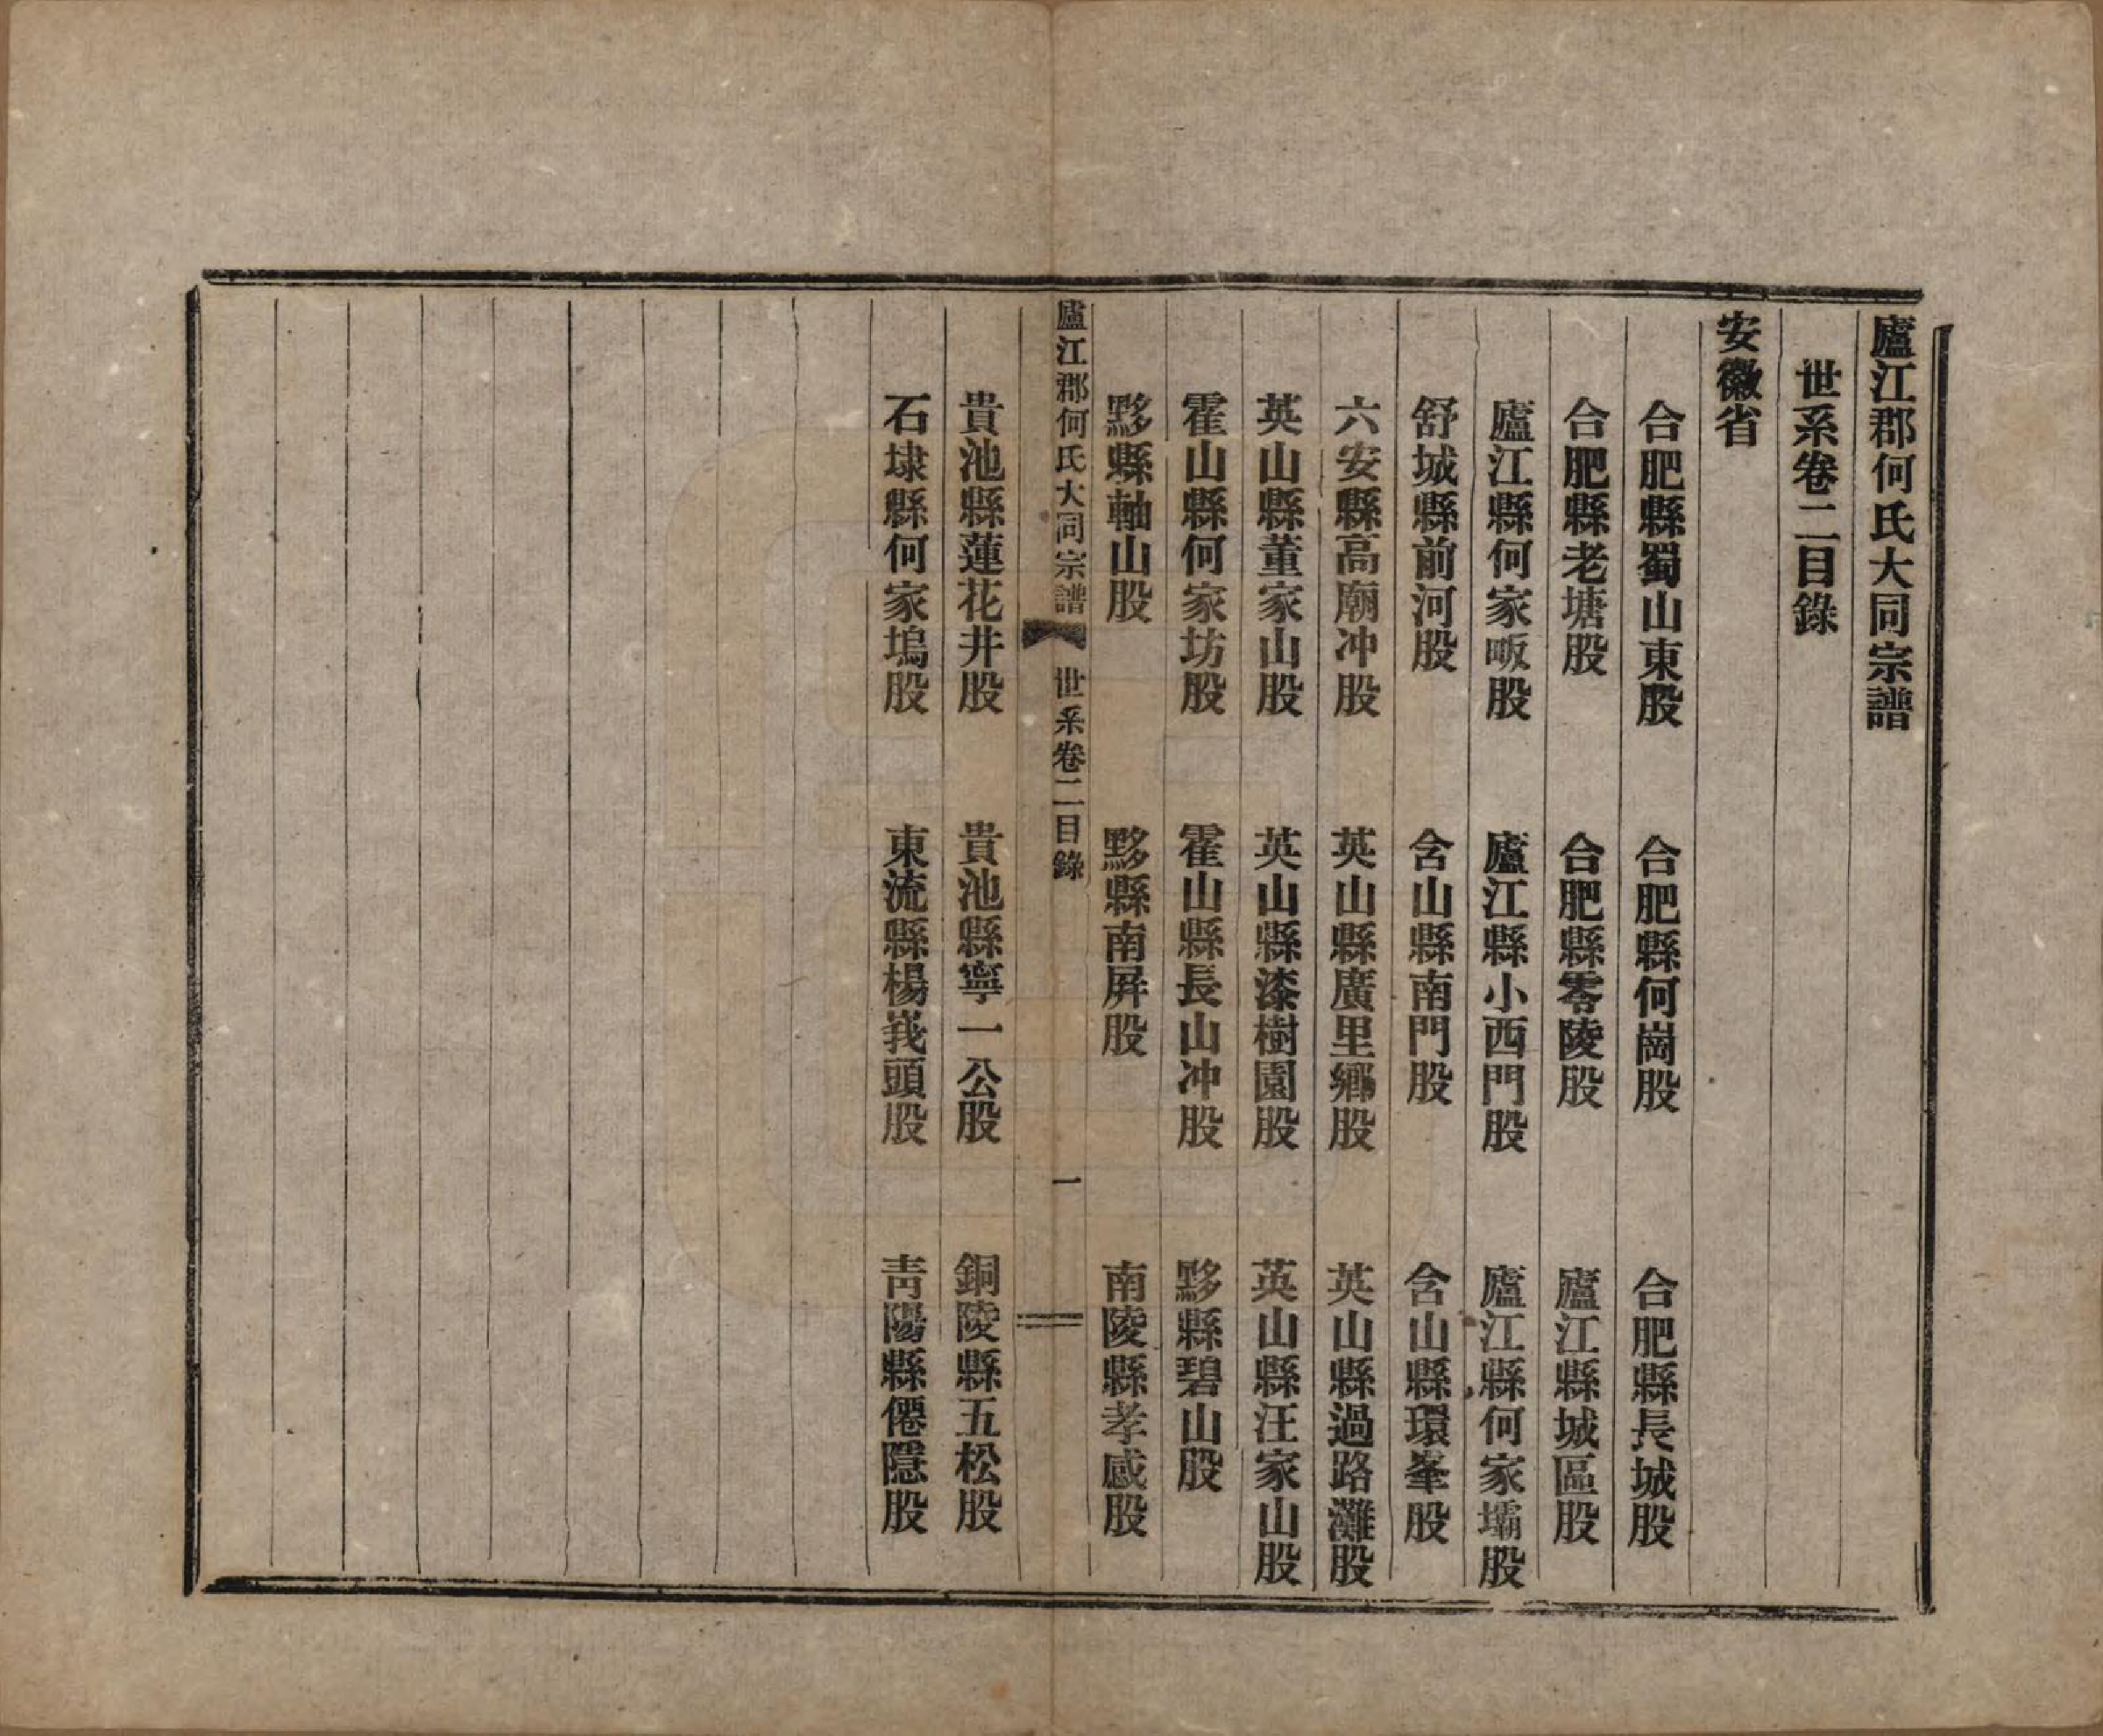 廬江郡何氏大同宗譜
世系卷二目錄
安徽省
合肥縣蜀山東股　合肥縣何崗股　合肥縣長城股
合肥縣老塘股　合肥縣零陵股　廬江縣城區股
廬江縣何家畈股　廬江縣小西門股　廬江縣何家壩股
舒城縣前河股　含山縣南門股　含山縣環峯股
六安縣高廟冲股　英山縣廣里鄉股　英山縣過路灘股
英山縣董家山股　英山縣漆樹園股　英山縣汪家山股
霍山縣何家坊股　霍山縣長山冲股　黟縣碧山股
黟縣軸山股　黟縣南屏股　南陵縣孝感股
廬江郡何氏大同宗譜　世系卷二目錄　一
貴池縣蓮花井股　貴池縣寧一公股　銅陵縣五松股
石埭縣何家塢股　東流縣楊峩頭股　青陽縣僊隱股